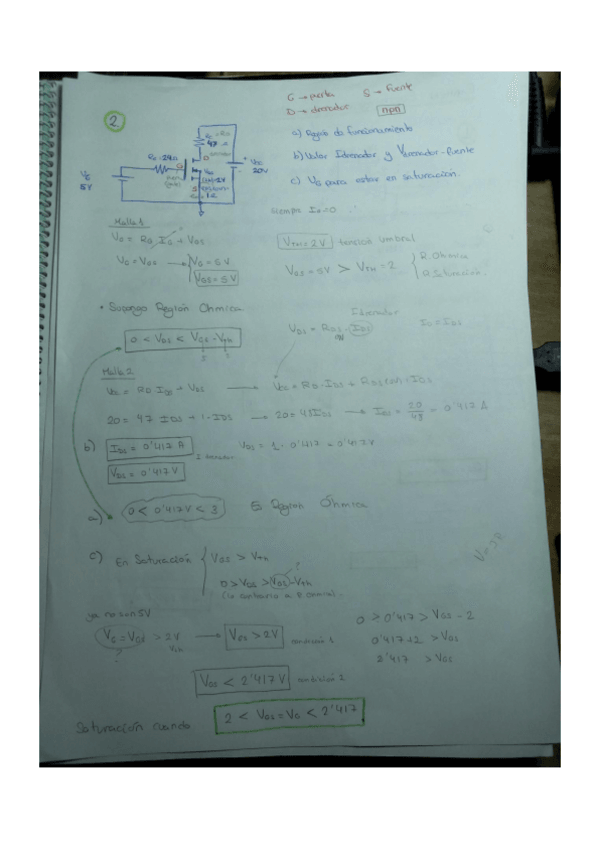 G → puerta S → fuente
D → drenador npn
2
a) Región de funcionamiento
b) Valor Idrenador y Vdrenador-fuente
c) VG para estar en saturación.
47
D
G
S
VG
5V
20V
Siempre IG=0
Malla 1
VTH = 2V tensión umbral
VG = VGS → VG = 5V
VGS = 5V
VGS = 5V > VTH = 2 { R. Ohmica
O Saturación.
• Supongo Región Ohmica
Idrenador
0 < VDS < VGS - Vth
5 2
VDS = RDS · IDS
ID = IDS
Malla 2
VCC = RD · IDS + VDS → VCC = RD · IDS + RDS(on) · IDS
20 = 47 IDS + 1 · IDS → 20 = 48 IDS → IDS = 20/48 = 0'417 A
b) IDS = 0'417 A
Idrenador
VDS = 1 · 0'417 = 0'417 V
VDS = 0'417 V
a) 0 < 0'417V < 3 Es Región Óhmica
c) En Saturación { VGS > Vth
?
0 > VDS > VGS - Vth
(lo contrario a R. Ohmica).
ya no son 5V
VG = VGS > 2V → VGS > 2V condición 1
? Vth
0 > 0'417 > VGS - 2
0'417 + 2 > VGS
2'417 > VGS
VGS < 2'417 V condición 2
Saturación cuando 2 < VGS = VG < 2'417